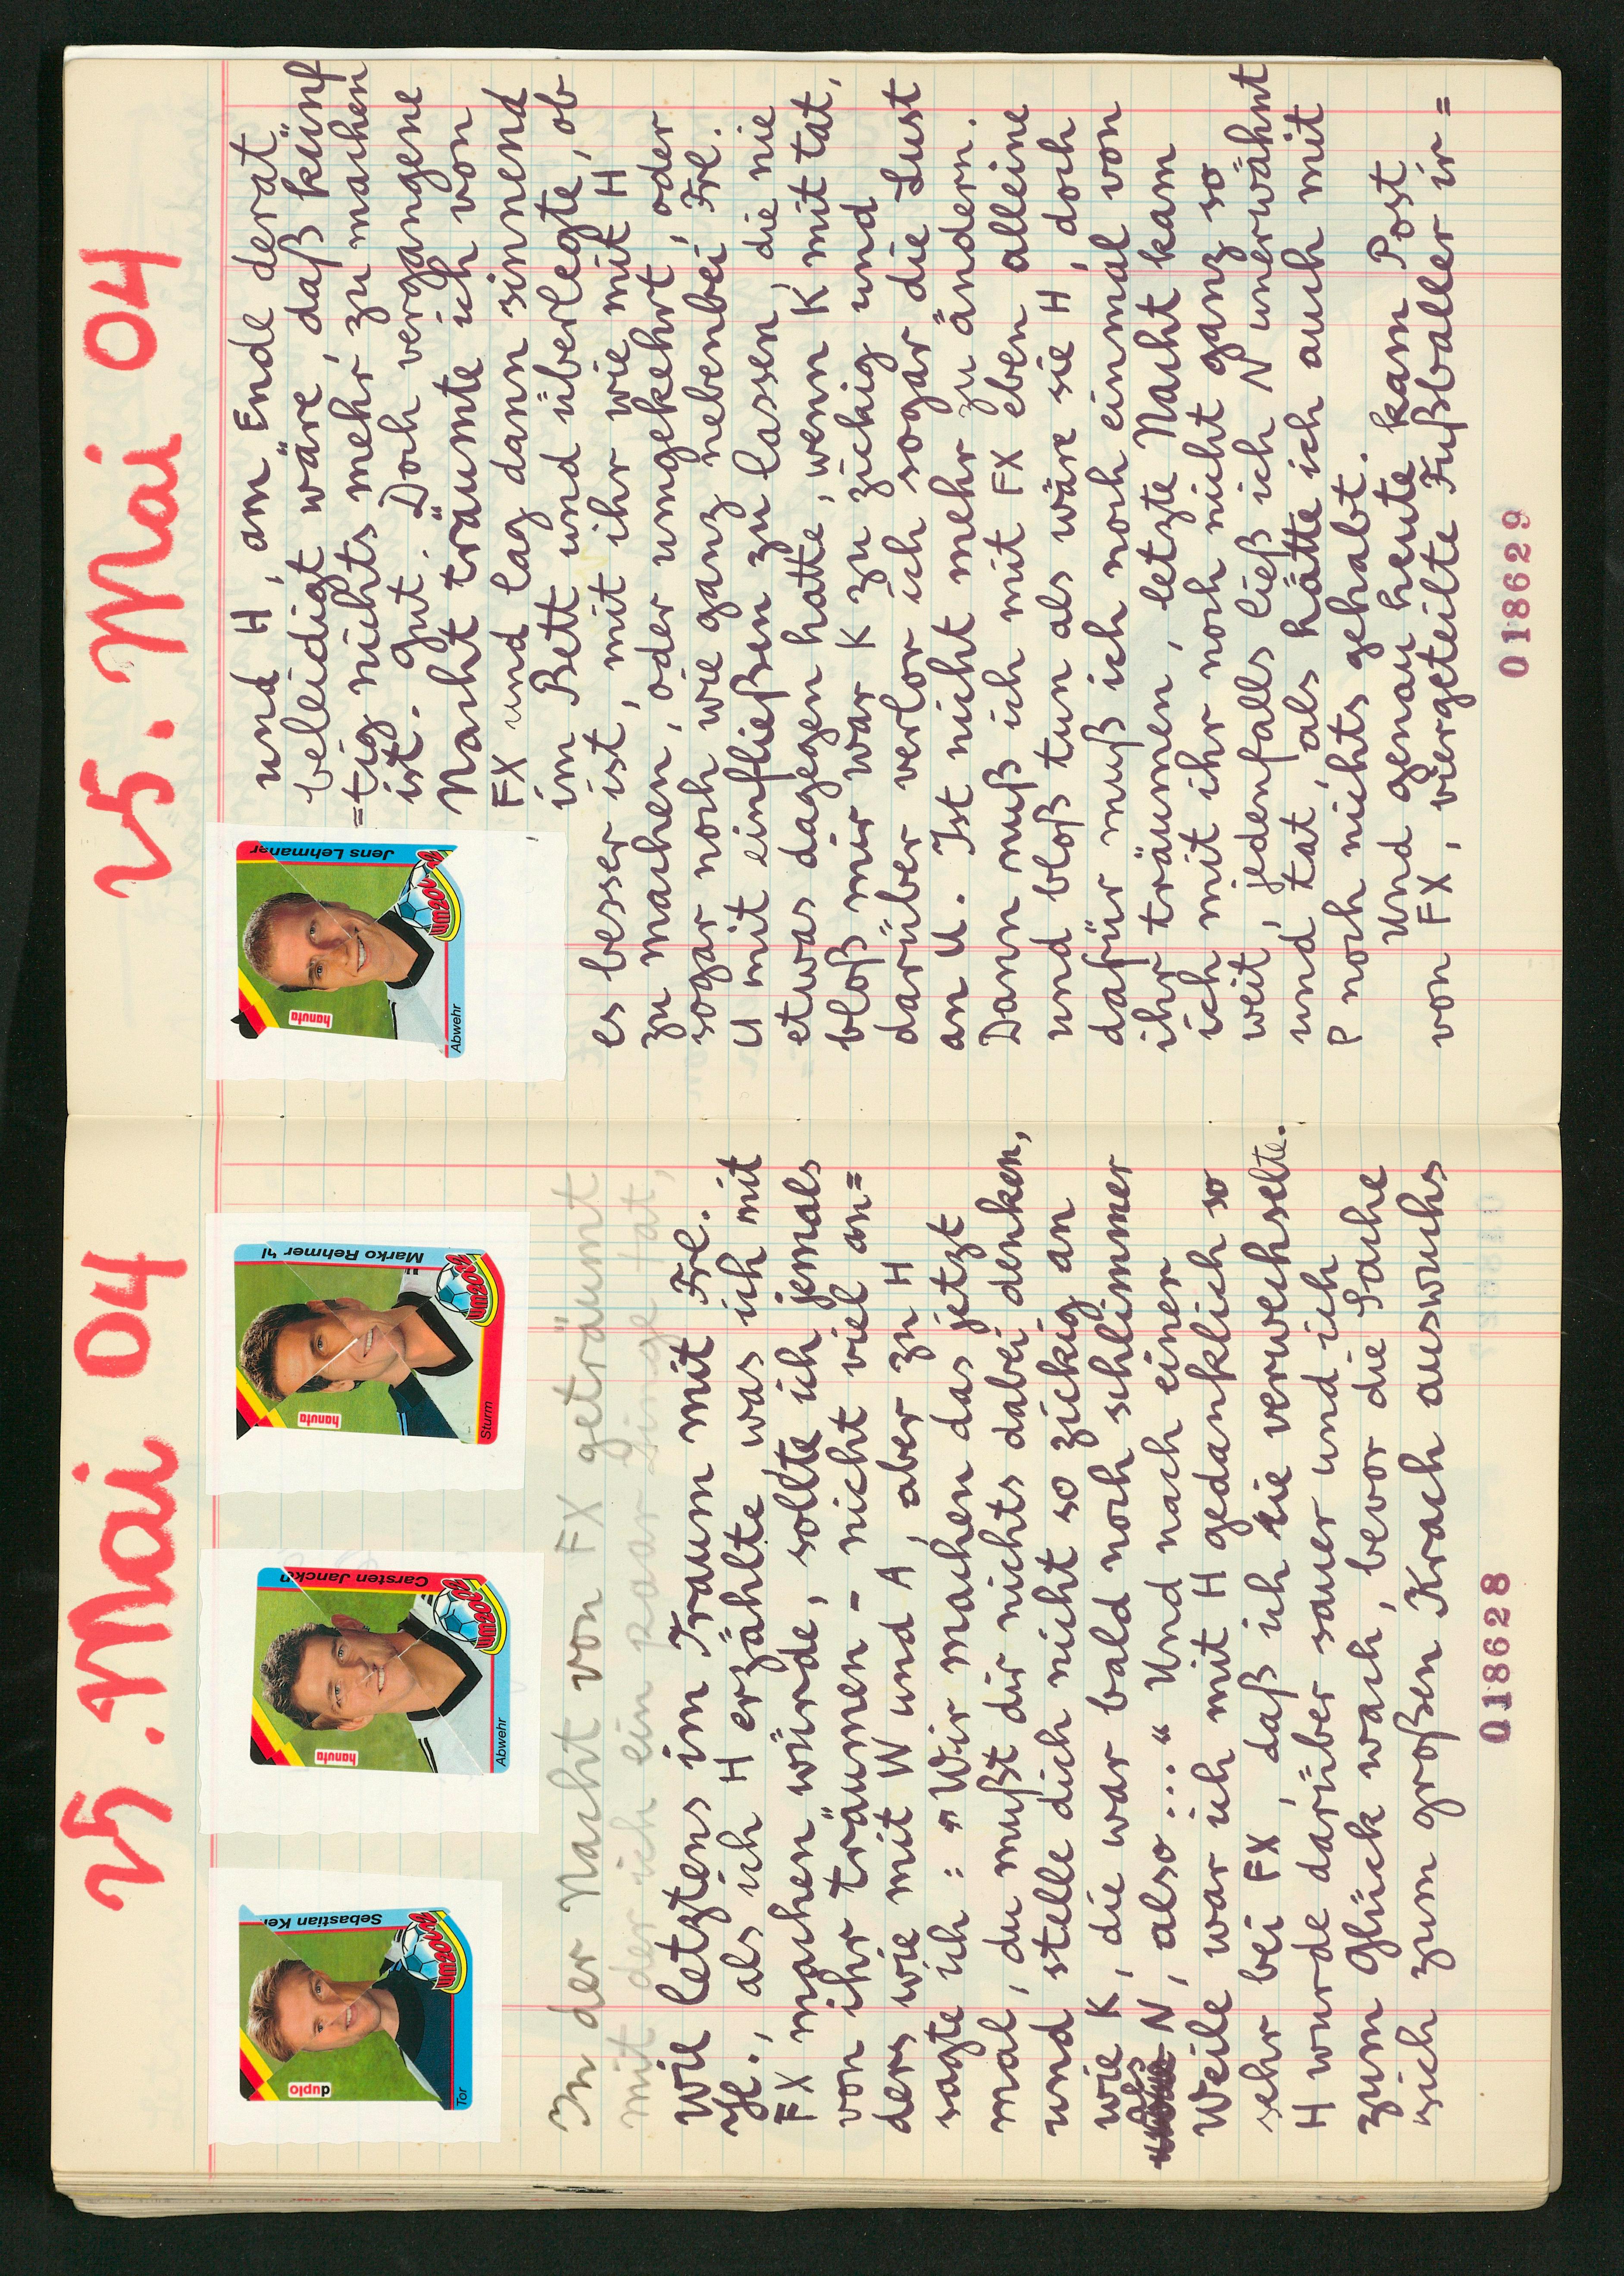 25. Mai 04
duplo
Tor
Sebastian Ke
WM2002
hanuta
Abwehr
Carsten Jancke
WM2002
hanuta
Sturm
Marko Rehmer
WM2002
In der Nacht von FX geträumt
mit der ich ein paar Dinge tat,
Wie letztens im Traum mit Frl.
Yl., als ich H erzählte was ich mit
FX machen würde, sollte ich jemals
von ihr träumen - nicht viel an=
ders wie mit W und A, aber zu H
sagte ich: "Wir machen das jetzt
mal, du mußt dir nichts dabei denken,
und stelle dich nicht so zickig an
wie K, die war bald noch schlimmer
als N, also ..." Und nach einer
Weile war ich mit H gedanklich so
sehr bei FX, daß ich sie verwechselte.
H wurde darüber sauer und ich
zum Glück wach, bevor die Sache
sich zum großen Krach auswuchs
018628
25. Mai 04
hanuta
Abwehr
Jens Lehmann
WM2002
und H, am Ende derat
beleidigt wäre, daß künf
=tig nichts mehr zu machen
ist. Gut. Doch vergangene
Nacht träumte ich von
FX und lag dann sinnend
im Bett und überlegte, ob
es besser ist, mit ihr wie mit H
zu machen, oder umgekehrt, oder
sogar noch wie ganz nebenbei, Frl.
U mit einfließen zu lassen, die nie
etwas dagegen hatte, wenn K mit tat,
bloß mir war K zu zickig und
darüber verlor ich sogar die Lust
an U. Ist nicht mehr zu ändern.
Dann muß ich mit FX eben alleine
und bloß tun als wäre sie H, doch
dafür muß ich noch einmal von
ihr träumen, letzte Nacht kam
ich mit ihr noch nicht ganz so
weit, jedenfalls ließ ich N unerwähnt
und tat, als hätte ich auch mit
P noch nichts gehabt.
Und genau heute kam Post
von FX, viergeteilte Fußballer ir=
018629